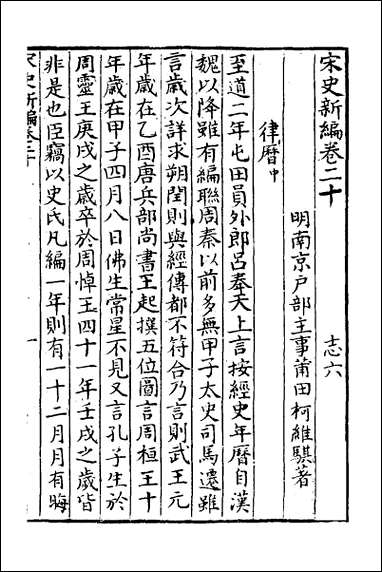 宋史新編卷二十
志六
明南京户部主事莆田柯維騏著
律曆中
至道二年屯田員外郎呂奉天上言按經史年曆自漢
魏以降雖有編聯周秦以前多無甲子太史司馬遷雖
言歲次詳求朔閏則與經傳都不符合乃言則武王元
年歲在乙酉唐兵部尚書王起撰五位圖言周桓王十
年歲在甲子四月八日佛生常星不見又言孔子生於
周靈王庚戌之歲卒於周悼王四十一年壬戌之歲皆
非是也臣竊以史氏凡編一年則有一十二月月有晦
宋史新編卷二十
一